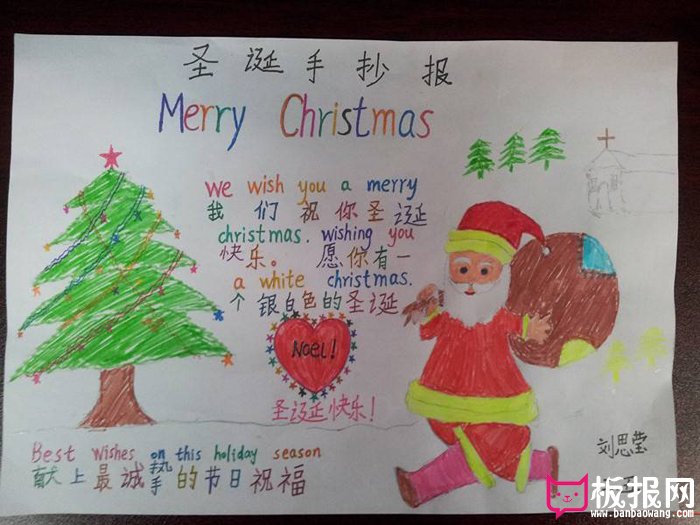 圣诞手抄报
Merry Christmas
we wish you a merry
我们祝你圣诞
christmas. wishing you
快乐。愿你有一
a white christmas.
个银白色的圣诞
Noel!
圣诞快乐!
Best wishes on this holiday season
献上最诚挚的节日祝福
刘思莹
板报网
www.banbaowang.com